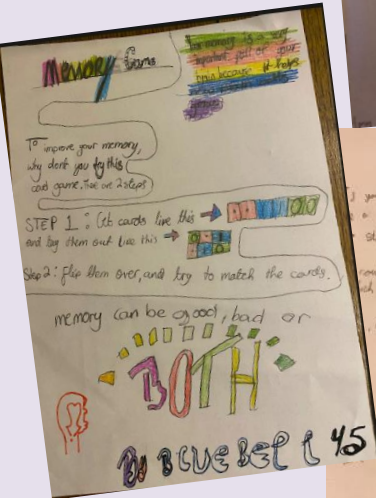 Memory forms
memory is a very
important part of your
brain because it helps
To improve your memory,
why don't you try this
card game. There are 2 steps
STEP 1: Get cards like this
and lay them out like this
Step 2: flip them over, and try to match the cards.
memory can be good, bad or
BOTH
By BLUEBELL 45